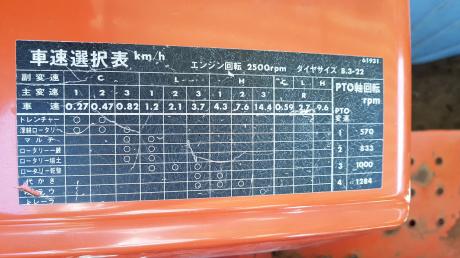 61931
車速選択表 km/h
エンジン回転 2500rpm タイヤサイズ 8.3-22
副変速 C L H C L H
主変速 1 2 3 1 2 3 1 2 3 R
車速 0.27 0.47 0.82 1.2 2.1 3.7 4.3 7.6 14.4 0.59 2.7 9.6
PTO軸回転 rpm
PTO変速
1 570
2 833
3 1000
4 1284
トレンチャー ○ ○
深耕ロータリー ○ ○
マルチ ○ ○
ロータリー一般 ○ ○
ロータリー培土 ○ ○
ロータリー乾整 ○ ○ ○
代かき ○ ○
プラウ ○ ○ ○
トレーラ